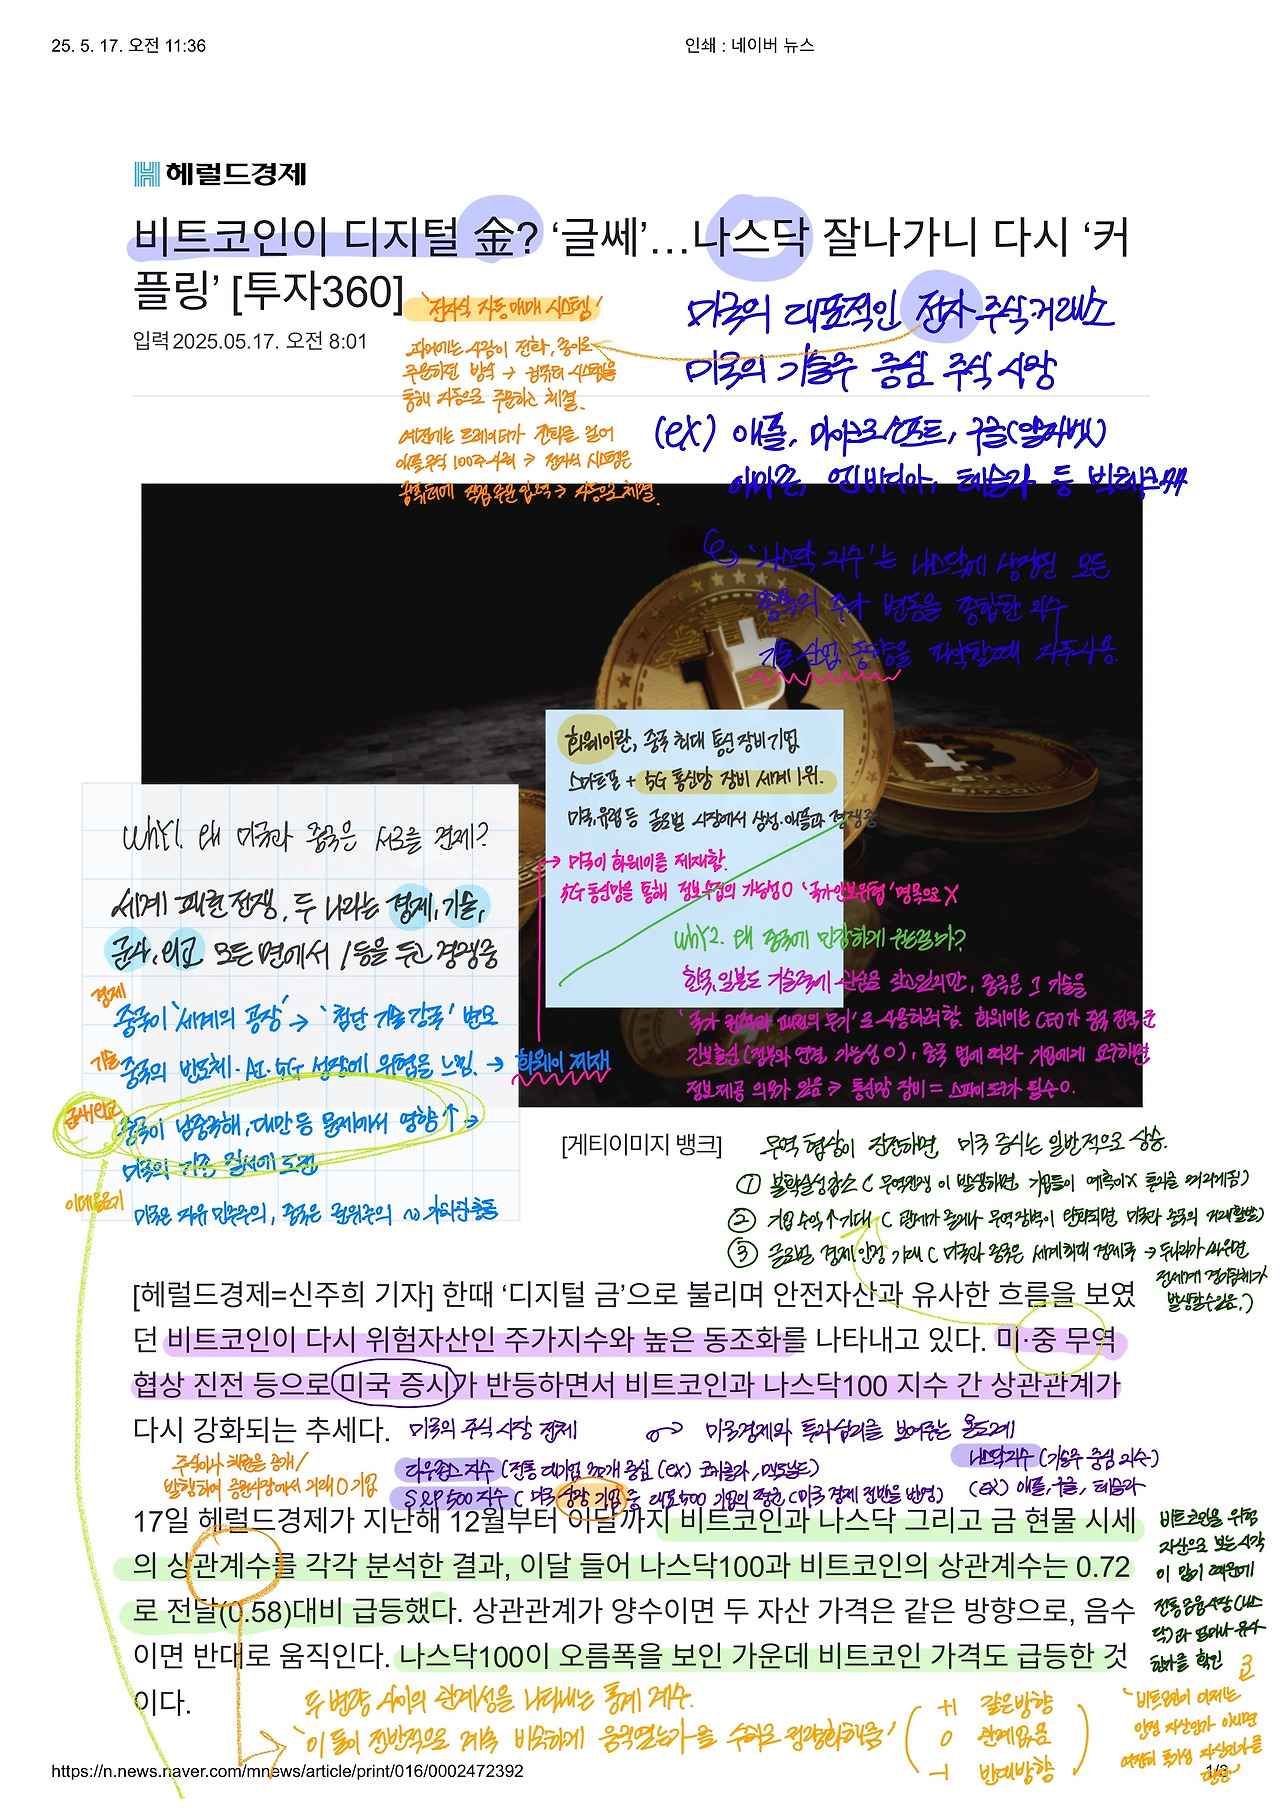 25. 5. 17. 오전 11:36
인쇄 : 네이버 뉴스
헤럴드경제
비트코인이 디지털 金? ‘글쎄’…나스닥 잘나가니 다시 ‘커
플링’ [투자360]
입력2025.05.17. 오전 8:01
'전자식 자동매매 시스템'
과거에는 사람이 전화, 종이로
주문하던 방식 → 컴퓨터 시스템을
통해 자동으로 주문하는 체결.
예전에는 트레이더가 전화를 걸어
애플 주식 100주 → 전자식 시스템은
컴퓨터에 직접 주문 입력 → 자동으로 체결.
미국의 대표적인 전자 주식거래소
미국의 기술주 중심 주식 시장
(ex) 애플, 마이크로소프트, 구글(알파벳)
아마존, 엔비디아, 테슬라 등 빅테크
'나스닥 지수'는 나스닥에 상장된 모든
종목의 주가 변동을 종합한 지수
기술 산업 동향을 파악할때 자주사용.
화웨이란, 중국 최대 통신 장비 기업
스마트폰 + 5G 통신망 장비 세계 1위.
미국, 유럽 등 글로벌 시장에서 삼성·애플과 전쟁중
→ 미국이 화웨이를 제재함.
5G 통신망을 통해 정보수집의 가능성 O '국가안보위협' 명목으로 X
Why2. 왜 중국에 민감하게 구는걸까?
한국, 일본도 기술력에 있지만, 중국은 그 기술을
'국가 전략과 패권의 무기'로 사용하려함. 화웨이는 CEO가 중국 군
간부출신 (정부와 연결 가능성 O), 중국 법에 따라 기업에게 요구하면
정보제공 의무가 있음 → 통신망 장비 = 스파이 도구가 될수 O.
Why1. 왜 미국과 중국은 서로를 견제?
세계 패권전쟁. 두 나라는 경제, 기술,
군사, 외교 모든 면에서 1등을 두고 경쟁중
경제
중국이 '세계의 공장' → '첨단 기술 강국' 변모
기술
중국의 반도체·AI·5G 성장에 위협을 느낌. → 화웨이 제재
군사외교
중국이 남중국해, 대만 등 문제에서 영향↑ →
미국의 기존 질서에 도전
이데올로기
미국은 자유 민주주의, 중국은 권위주의 ~ 가치관 충돌
[게티이미지 뱅크]
무역 협상이 진전하면, 미국 증시는 일반적으로 상승.
① 불확실성 감소 ( 무역전쟁 이 발생하면, 기업들이 예측이 X 투자를 꺼리게됨)
② 기업 수익↑ 기대 ( 관세가 줄거나 무역장벽이 완화되면, 미국과 중국의 거래활발)
③ 글로벌 경제 안정 기대 ( 미국과 중국은 세계 최대 경제국 → 두나라가 싸우면
전세계 경기침체가
발생할수있음.)
[헤럴드경제=신주희 기자] 한때 ‘디지털 금’으로 불리며 안전자산과 유사한 흐름을 보였
던 비트코인이 다시 위험자산인 주가지수와 높은 동조화를 나타내고 있다. 미·중 무역
협상 진전 등으로 미국 증시가 반등하면서 비트코인과 나스닥100 지수 간 상관관계가
다시 강화되는 추세다.
미국의 주식 시장 전체
미국경제와 투자심리를 보여주는 온도계
주식이나 채권을 공개/
발행하여 증권시장에서 거래 O 기업
다우존스 지수 (전통 대기업 30개 중심 (ex) 코카콜라, 맥도날드)
나스닥지수 (기술주 중심 지수)
S&P 500 지수 ( 미국 상장 기업 중 대표 500 기업의 평균 (미국 경제 전반을 반영)
(ex) 애플, 구글, 테슬라
17일 헤럴드경제가 지난해 12월부터 이달까지 비트코인과 나스닥 그리고 금 현물 시세
의 상관계수를 각각 분석한 결과, 이달 들어 나스닥100과 비트코인의 상관계수는 0.72
로 전달(0.58)대비 급등했다. 상관관계가 양수이면 두 자산 가격은 같은 방향으로, 음수
이면 반대로 움직인다. 나스닥100이 오름폭을 보인 가운데 비트코인 가격도 급등한 것
이다.
비트코인을 위험
자산으로 보는 시각
이 많기 때문에
전통금융시장(나스
닥)과 얼마나 유사
한가를 확인
두 변량 사이의 관계성을 나타내는 통계 계수.
'이 둘이 전반적으로 계속 비슷하게 움직였는가'를 수치로 정량화해줌
+1 같은방향
0 관계없음
-1 반대방향
'비트코인이 이제는
안전 자산인가 아니면
여전히 투기성 자산인가를
판단
https://n.news.naver.com/mnews/article/print/016/0002472392